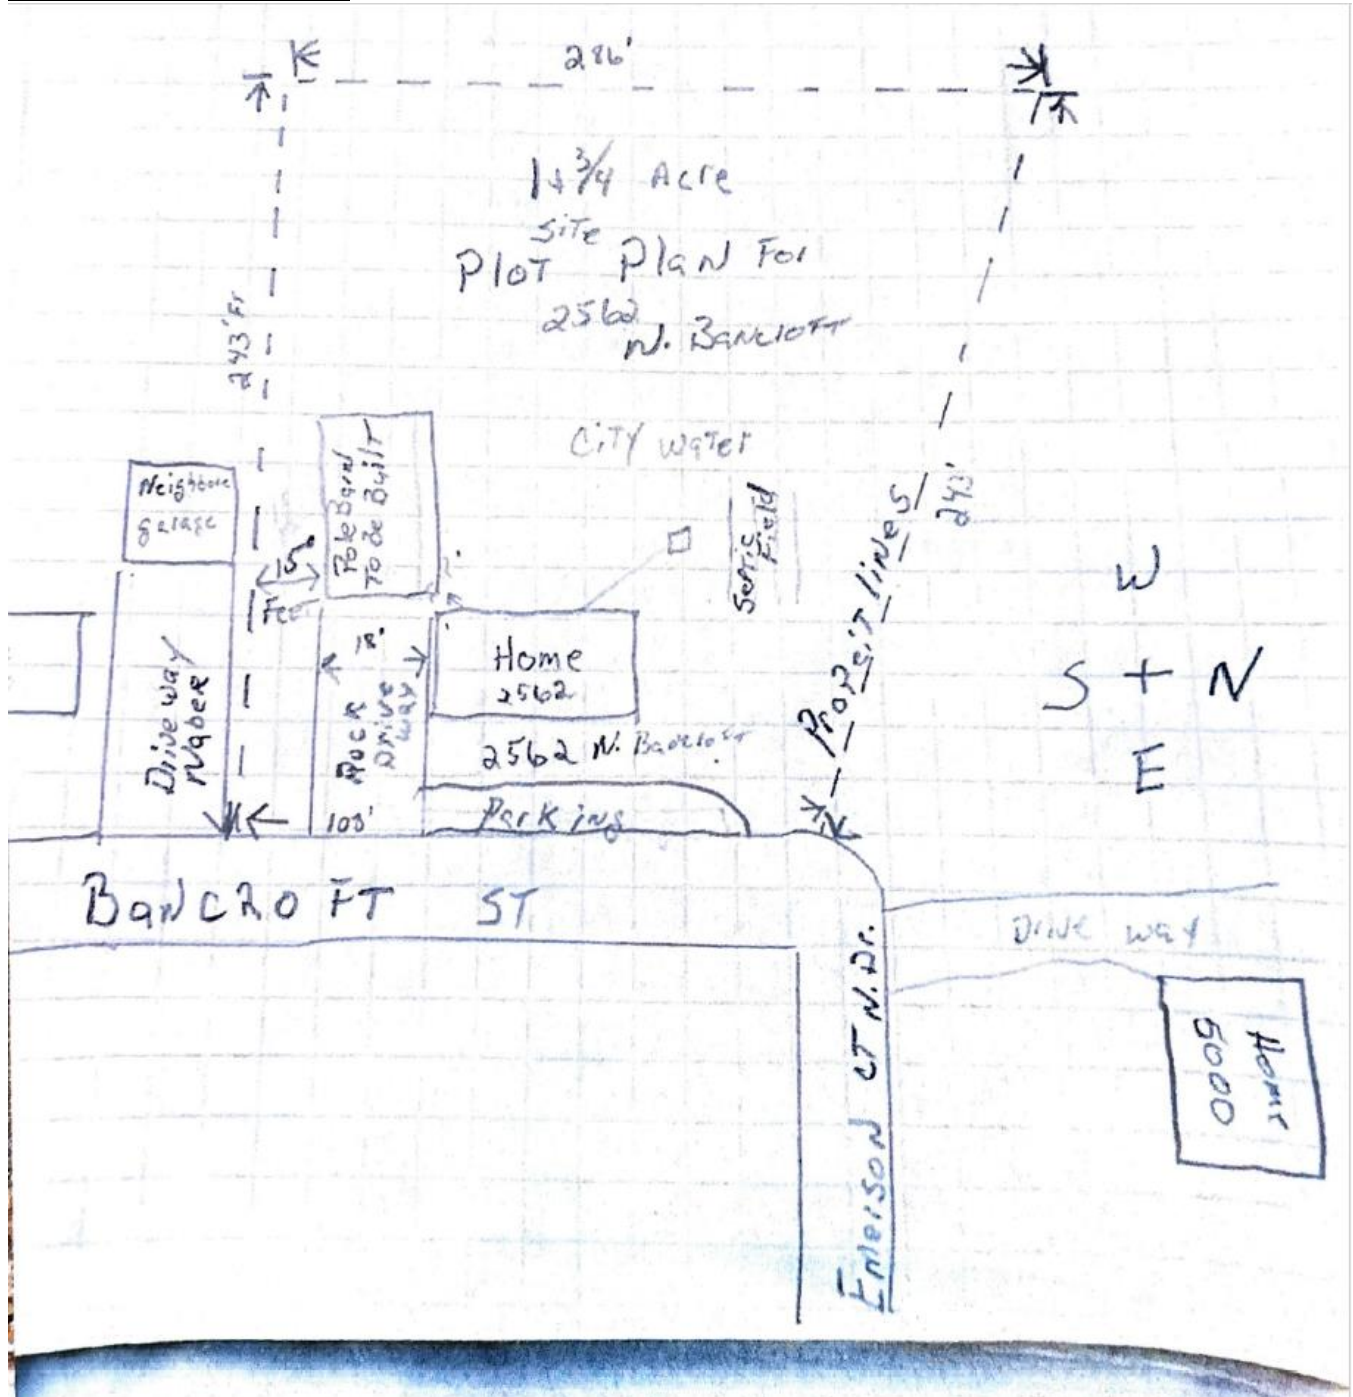 286'
1+3/4 Acre
Site
Plot Plan For
2562
N. Bancroft
243' Ft
City Water
Neighbore
garage
Pole Barn
To Be Built
15'
Feet
Septic
Field
Property lines
243'
W
S + N
E
18'
Home
2562
Driveway
Naber
Rock
Drive
way
2562 N. Bancroft
103'
Parking
BANCROFT ST
Drive way
Emerson CT N. Dr.
Home
5000